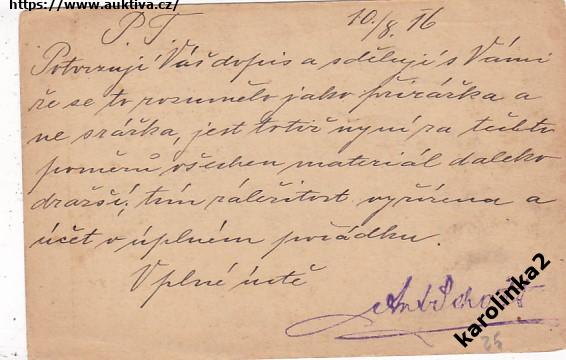 https://www.auktiva.cz/
P. T. 10./8. 16
Potvrzuji Váš dopis a sděluji s Vámi
že se to rozumělo jako přirážka a
ne srážka, jest totiž nyní za těchto
poměrů všechen materiál daleko
dražší, tím záležitost vyřízena a
účet v úplném pořádku.
V plné úctě
karolinka2
25